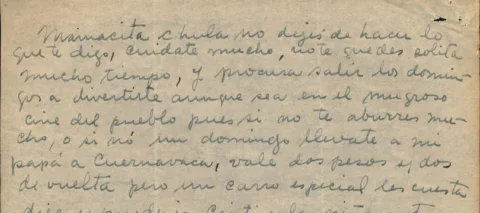 Mamacita chula no dejes de hacer lo
que te digo, cuidate mucho, no te quedes solita
mucho tiempo, y procura salir los domin-
gos a divertirte aunque sea en el mugroso
cine del pueblo pues si no te aburres mu-
cho, o si nó un domingo llevate a mi
papá a Cuernavaca, vale dos pesos y dos
de vuelta pero un carro especial les cuesta